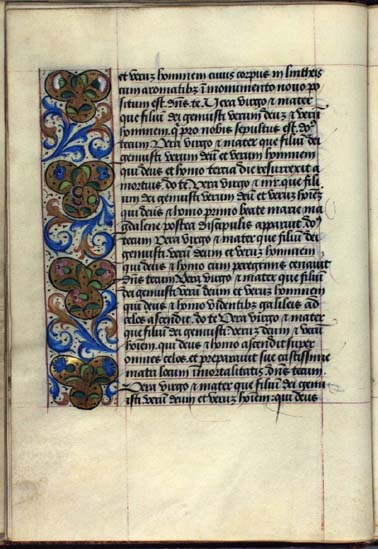 et veruz hominem cuius corpus in lintheis
cum aromatibz in monumento novo po
situm est. dns te. Vera virgo et mater
que filiu dei genuisti verum deuz et veru
hominem. qi pro nobis sepultus est. do
tecum Vera virgo et mater que filiu dei
genuisti verum deu et verum hominem
qui deus et homo tercia die resurrexit a
mortuis. do te Vera virgo et mr. que fili
um dei genuisti verum deu et veruz hoiez
qui deus et homo primo beate marie ma
gdalene postea discipulis apparuit. do
tecum Vera virgo et mater que filiu dei
genuisti veru deum et veruz hominem
qui deus et homo cum peregrinis cenavit
dns tecum. Vera virgo et mater que filiu
dei genuisti veru deum et veruz hominem
qui deus et homo videntibz galileis ad
celos ascendit. do te Vera virgo et mater
que filiu dei genuisti veruz deum et veru
hoiem. qui deus et homo ascendit super
omnes celos. et preparavit sue castissime
matri locum immortalitatis. dns tecum.
Vera virgo et mater que filiu dei genu
isti veru deum et veruz hoiem: qui deus